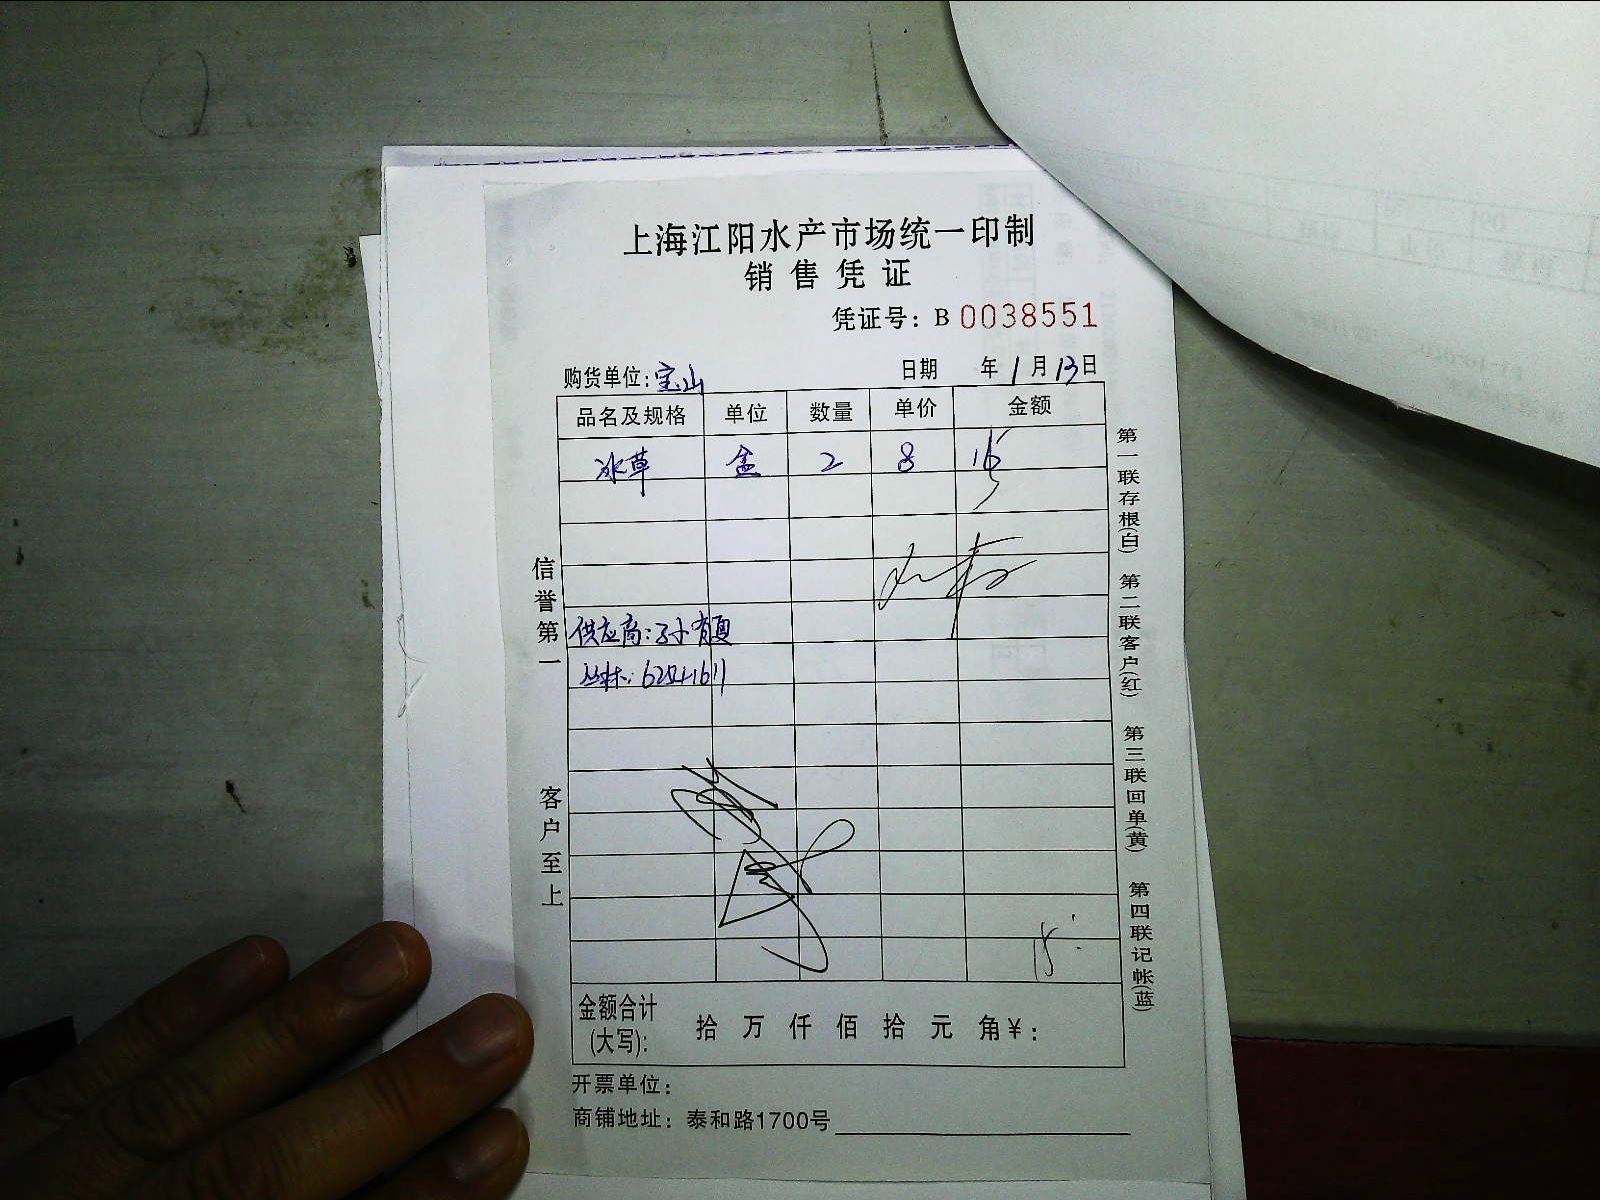 上海江阳水产市场统一印制
销售凭证
凭证号：B 0038551
购货单位：宝山 日期 年1月13日
品名及规格 单位 数量 单价 金额
冰草 盒 2 8 16
供应商：孙有夏
62541611
15
金额合计(大写)： 拾 万 仟 佰 拾 元 角 ¥：
开票单位：
商铺地址：泰和路1700号
信誉第一 客户至上
第一联存根(白) 第二联客户(红) 第三联回单(黄) 第四联记帐(蓝)